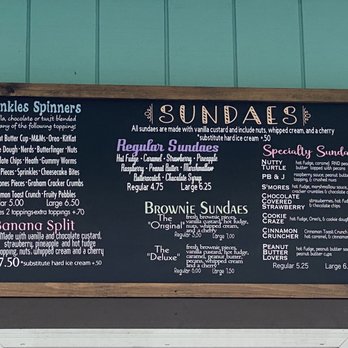 nkles Spinners
la, chocolate or twist blended
any of the following toppings:
t Butter Cup - M&Ms - Oreo - KitKat
e Dough - Nerds - Butterfinger - Nuts
late Chips - Heath - Gummy Worms
Pieces - Sprinkles - Cheesecake Bites
ones Pieces - Graham Cracker Crumbs
namon Toast Crunch - Fruity Pebbles
ular 5.00 Large 6.50
es 2 toppings extra toppings +.70
Banana Split
Made with vanilla and chocolate custard,
strawberry, pineapple and hot fudge
topping, nuts, whipped cream and a cherry
7.50 *substitute hard ice cream +.50
SUNDAES
All sundaes are made with vanilla custard and include nuts, whipped cream, and a cherry
*substitute hard ice cream +.50
Regular Sundaes
Hot Fudge - Caramel - Strawberry - Pineapple
Raspberry - Peanut Butter - Marshmallow
Butterscotch - Chocolate Syrup
Regular 4.75 Large 6.25
Brownie Sundaes
The "Original"
fresh brownie pieces,
vanilla custard, hot fudge,
nuts, whipped cream
and a cherry
Regular 5.50 Large 7.00
The "Deluxe"
fresh brownie pieces,
vanilla custard, hot fudge,
caramel, peanut butter,
pecans, whipped cream
and a cherry
Regular 6.00 Large 7.50
Specialty Sunda
NUTTY TURTLE
hot fudge, caramel, and
PB & J
raspberry sauce, peanut
S'MORES
marshmallow, hot fudge,
graham cracker crumbs &
CHOCOLATE COVERED STRAWBERRY
strawberries, hot fudge,
COOKIE CRAZE
Hot fudge, Oreo's, & cookie dough
CINNAMON CRUNCHER
Cinnamon Toast Crunch
hot caramel, & cinnamon
PEANUT BUTTER LOVERS
hot fudge, peanut butter
peanut butter cups
Regular 5.25 Large 6.